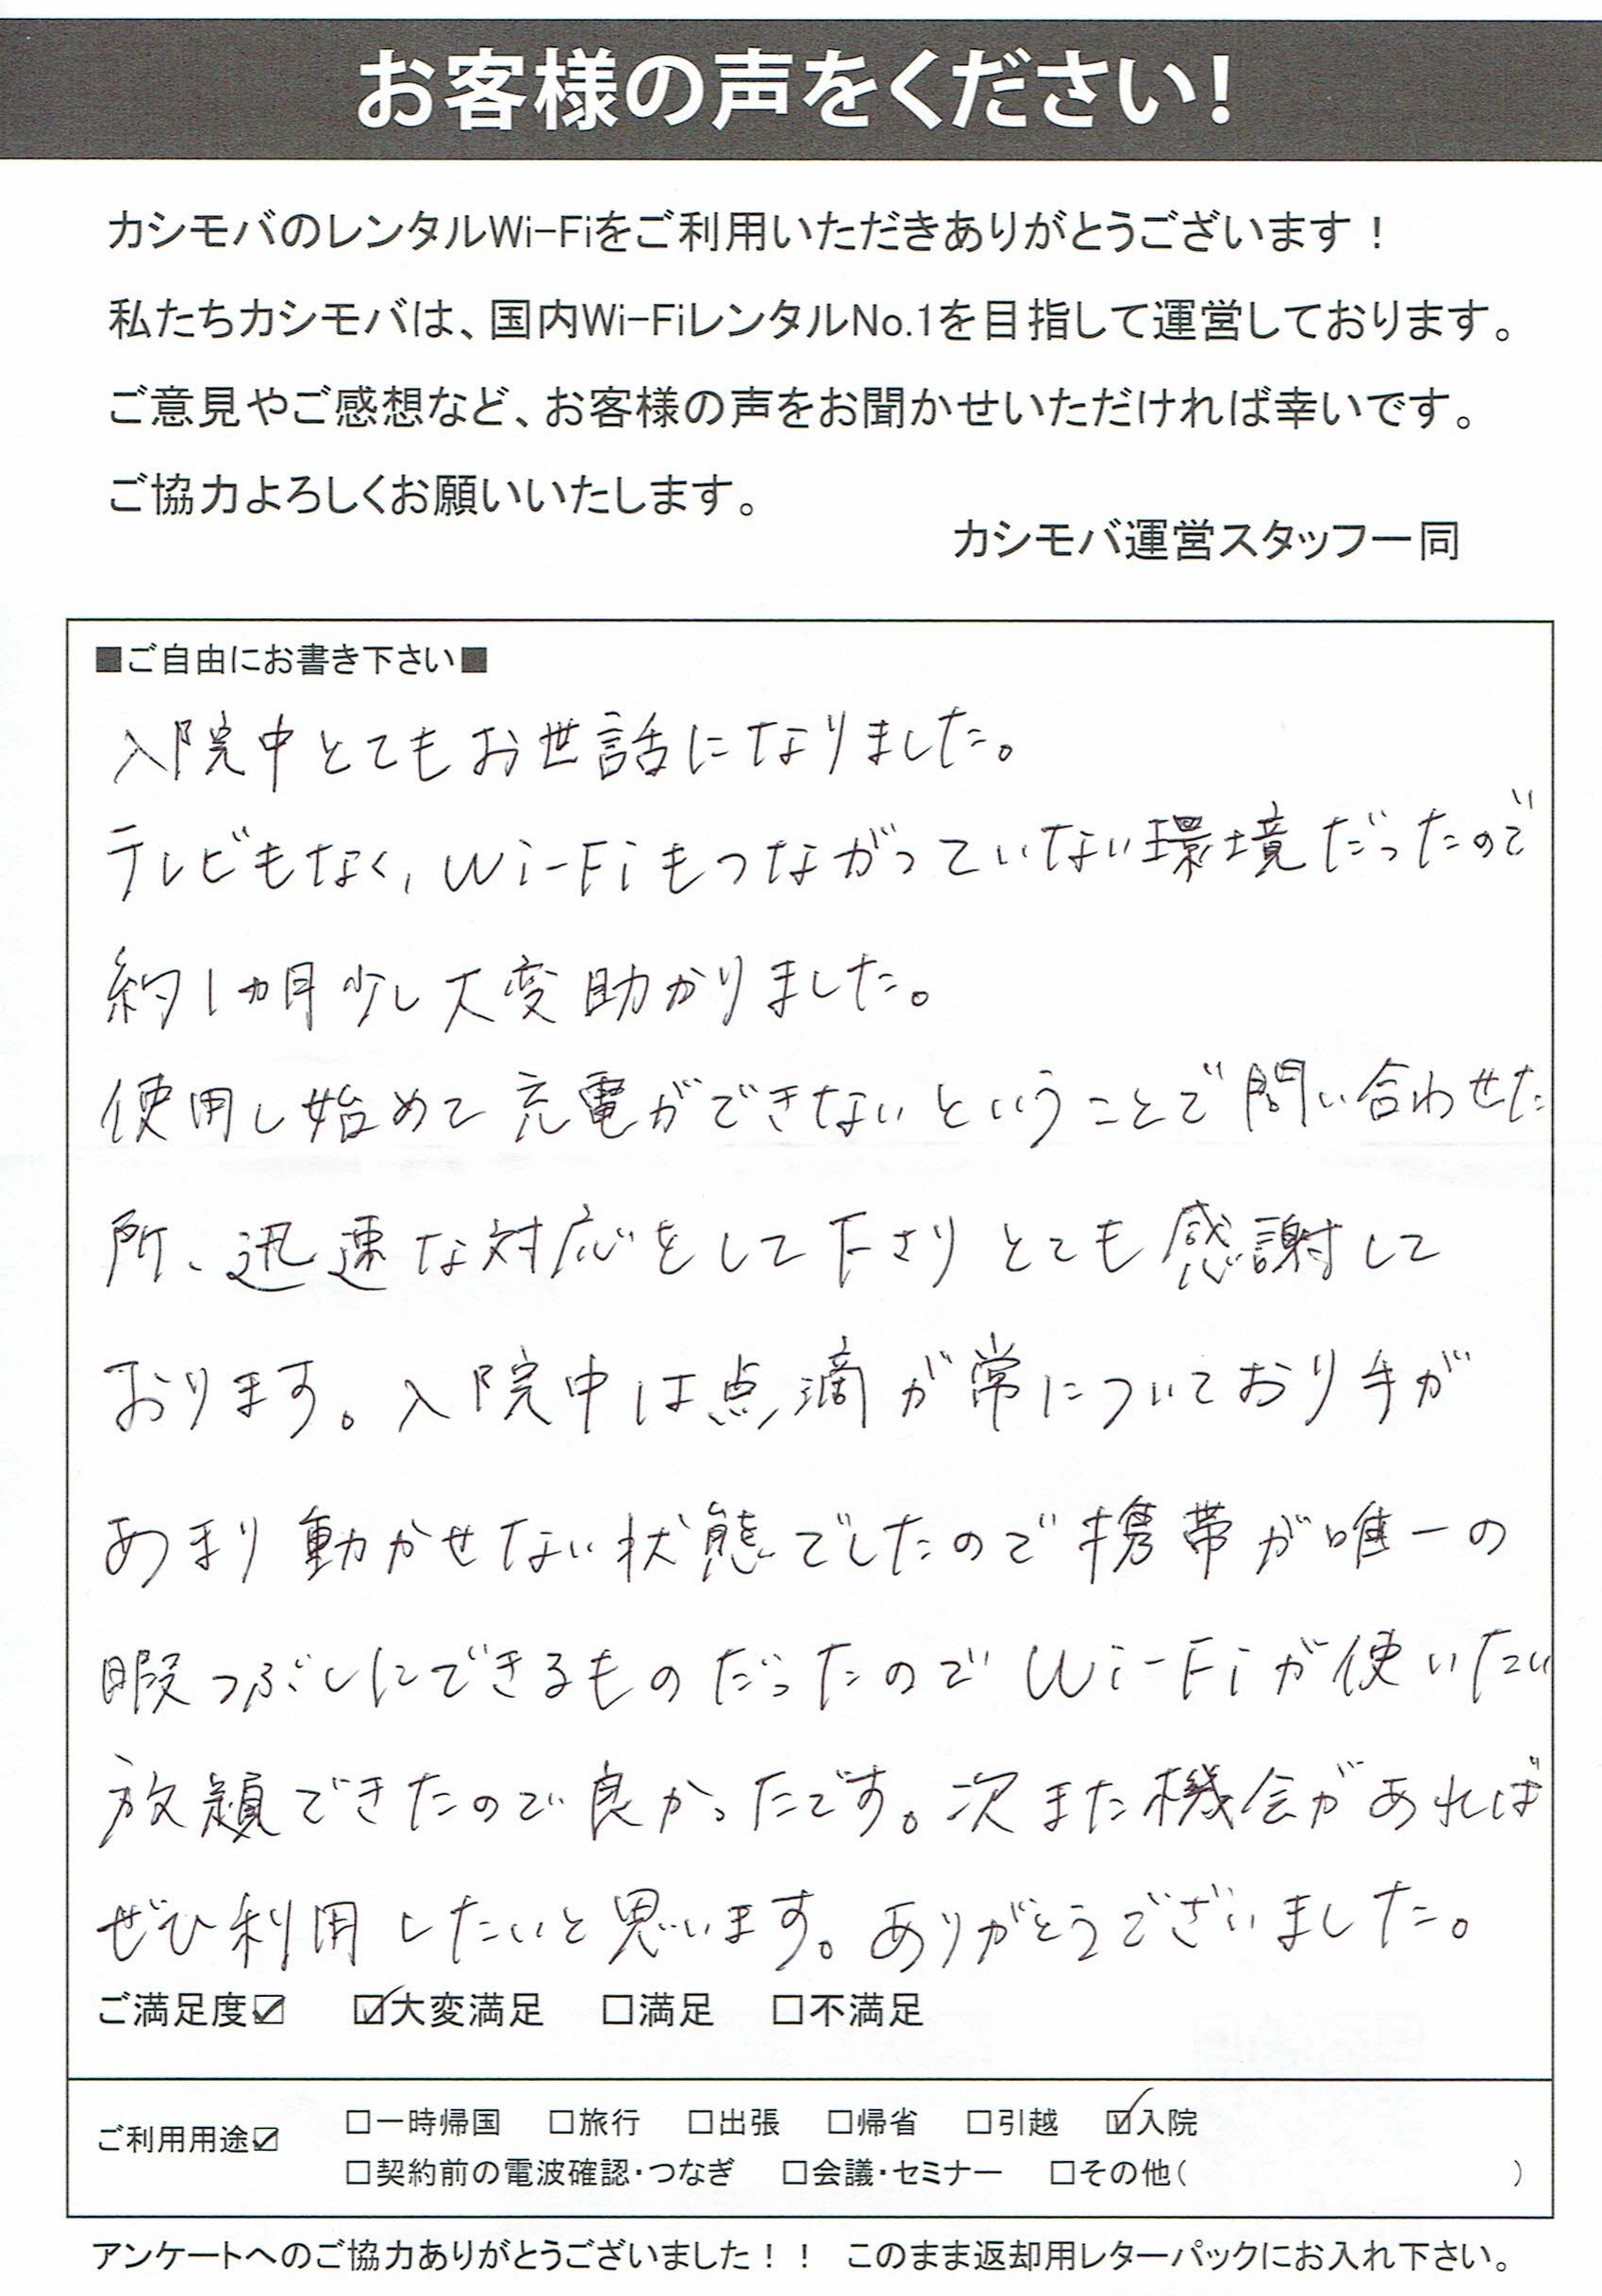 お客様の声をください!
カシモバのレンタルWi-Fiをご利用いただきありがとうございます！
私たちカシモバは、国内Wi-FiレンタルNo.1を目指して運営しております。
ご意見やご感想など、お客様の声をお聞かせいただければ幸いです。
ご協力よろしくお願いいたします。
カシモバ運営スタッフ一同
■ご自由にお書き下さい■
入院中とてもお世話になりました。
テレビもなく、Wi-Fiもつながっていない環境だったので
約1ヵ月少し大変助かりました。
使用し始めて充電ができないということで問い合わせた
所、迅速な対応をして下さりとても感謝して
おります。入院中は点滴が常についており手が
あまり動かせない状態でしたので携帯が唯一の
暇つぶしにできるものだったのでWi-Fiが使いたい
放題できたので良かったです。次また機会があれば
ぜひ利用したいと思います。ありがとうございました。
ご満足度☑ ☑大変満足 □満足 □不満足
ご利用用途☑ □一時帰国 □旅行 □出張 □帰省 □引越 ☑入院
□契約前の電波確認・つなぎ □会議・セミナー □その他( )
アンケートへのご協力ありがとうございました！！ このまま返却用レターパックにお入れ下さい。